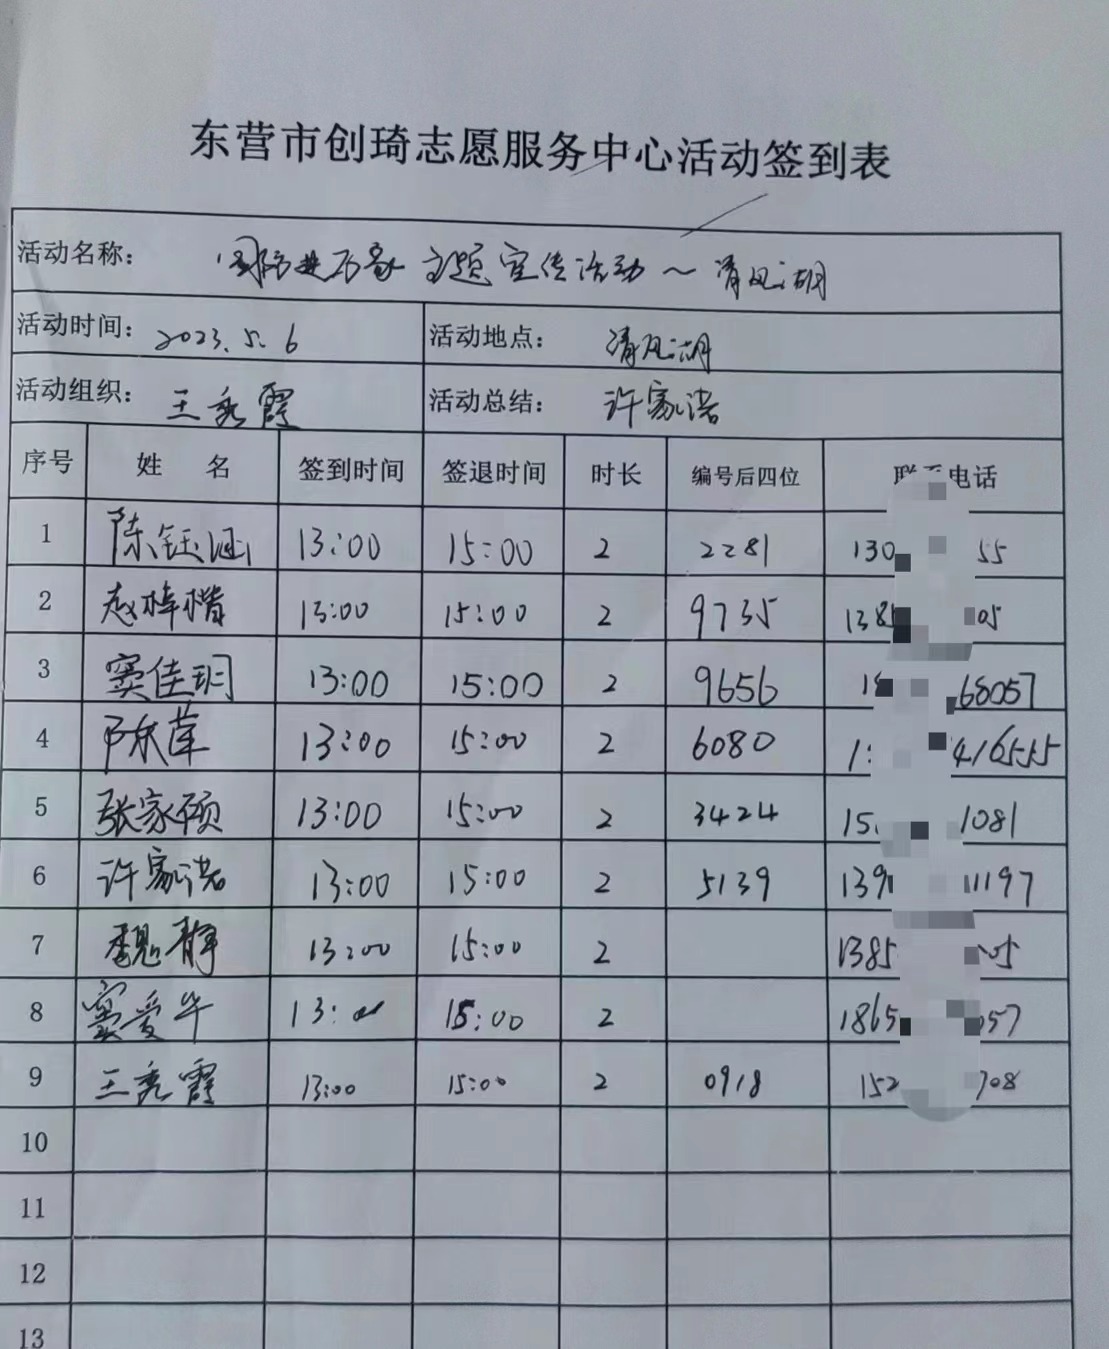 东营市创琦志愿服务中心活动签到表
活动名称： 国防进万家 主题宣传活动～清风湖
活动时间： 2023.5.6 活动地点： 清风湖
活动组织： 王秀霞 活动总结： 许家浩
序号 姓 名 签到时间 签退时间 时长 编号后四位 联系电话
1 陈钰 13:00 15:00 2 2281 130 55
2 赵梓楷 13:00 15:00 2 9735 1385 05
3 窦佳玥 13:00 15:00 2 9656 18 68057
4 陈萱 13:00 15:00 2 6080 1 416555
5 张家硕 13:00 15:00 2 3424 15 1081
6 许家浩 13:00 15:00 2 5139 139 11197
7 魏静 13:00 15:00 2 1385 05
8 窦爱华 13: 15:00 2 1865 057
9 王秀霞 13:00 15:00 2 0918 152 708
10
11
12
13